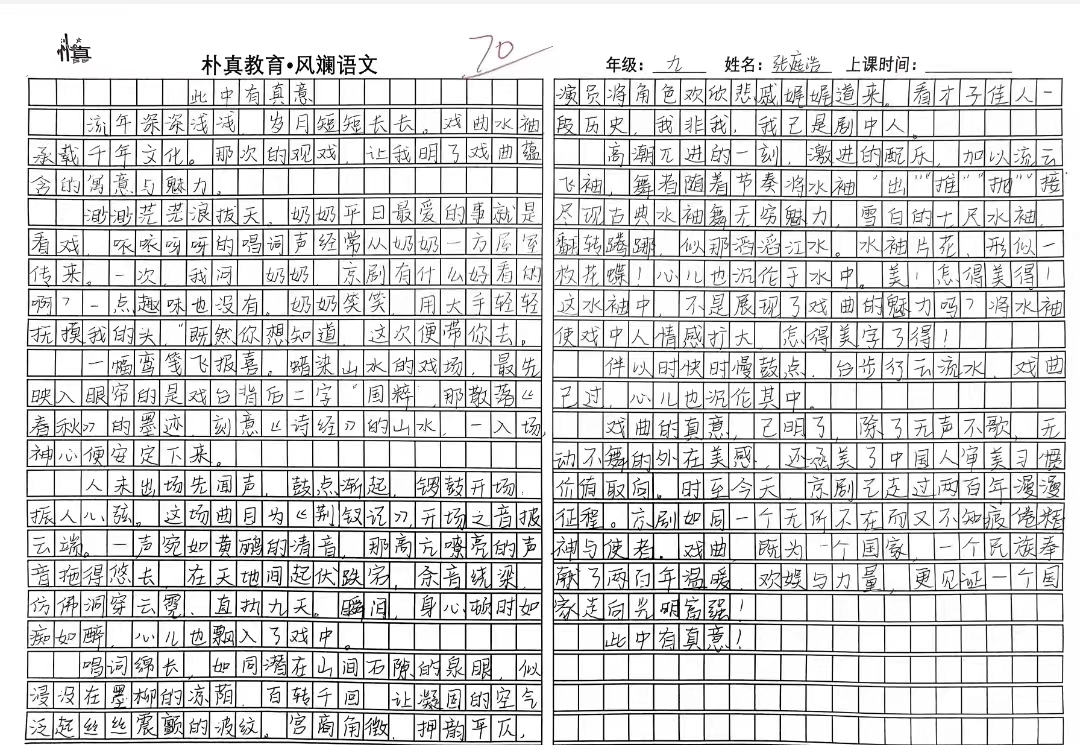 朴真
70
朴真教育•风斓语文
年级：九 姓名：张庭浩 上课时间：
此中有真意
流年深深浅浅，岁月短短长长。戏曲水袖
承载千年文化。那次的观戏，让我明了戏曲蕴
含的寓意与魅力。
渺渺茫茫浪拔天，奶奶平日最爱的事就是
看戏，咏咏呀呀的唱词声经常从奶奶一方居室
传来。一次，我问 奶奶，京剧有什么好看的
啊？一点趣味也没有。奶奶笑笑，用大手轻轻
抚摸我的头，“既然你想知道，这次便带你去。
一幅鸾笺飞报喜。蜡染山水的戏场，最先
映入眼帘的是戏台背后二字“国粹，那散落《
春秋》的墨迹，刻意《诗经》的山水，一入场，
神心便安定下来。
人未出场先闻声，鼓点渐起，锣鼓开场，
振人心弦。这场曲目为《荆钗记》，开场之音报
云端。一声宛如黄鹂的清音，那高亢嘹亮的声
音拖得悠长，在天地间起伏跌宕，余音绕梁，
仿佛洞穿云霓，直执九天。瞬间，身心顿时如
痴如醉，心儿也飘入了戏中。
唱词绵长，如同潜在山间石隙的泉眼，似
浸没在墨柳的凉荫，百转千回，让凝固的空气
泛起丝丝震颤的波纹。宫商角徵，押韵平仄，
演员将角色欢欣悲戚娓娓道来。看才子佳人一
段历史，我非我，我已是剧中人。
高潮兀进的一刻，激进的配乐，加以流云
飞袖，舞者随着节奏将水袖“出”“推”“抛”“接
尽现古典水袖舞无穷魅力，雪白的七尺水袖，
翻转腾挪，似那滔滔江水。水袖片花，形似一
枚花蝶！心儿也沉伦于水中。美！怎得美得！
这水袖中，不是展现了戏曲的魅力吗？将水袖
使戏中人情感扩大，怎得美字了得！
伴以时快时慢鼓点，台步行云流水，戏曲
已过，心儿也沉伦其中。
戏曲的真意，已明了，除了无声不歌，无
动不舞的外在美感，还涵美了中国人审美习惯
价值取向。时至今天，京剧已走过两百年漫漫
征程。京剧如同一个无所不在而又不知疲倦精
神与使者。戏曲，既为一个国家，一个民族奉
献了两百年温暖，欢娱与力量，更见证一个国
家走向光明富强！
此中有真意！